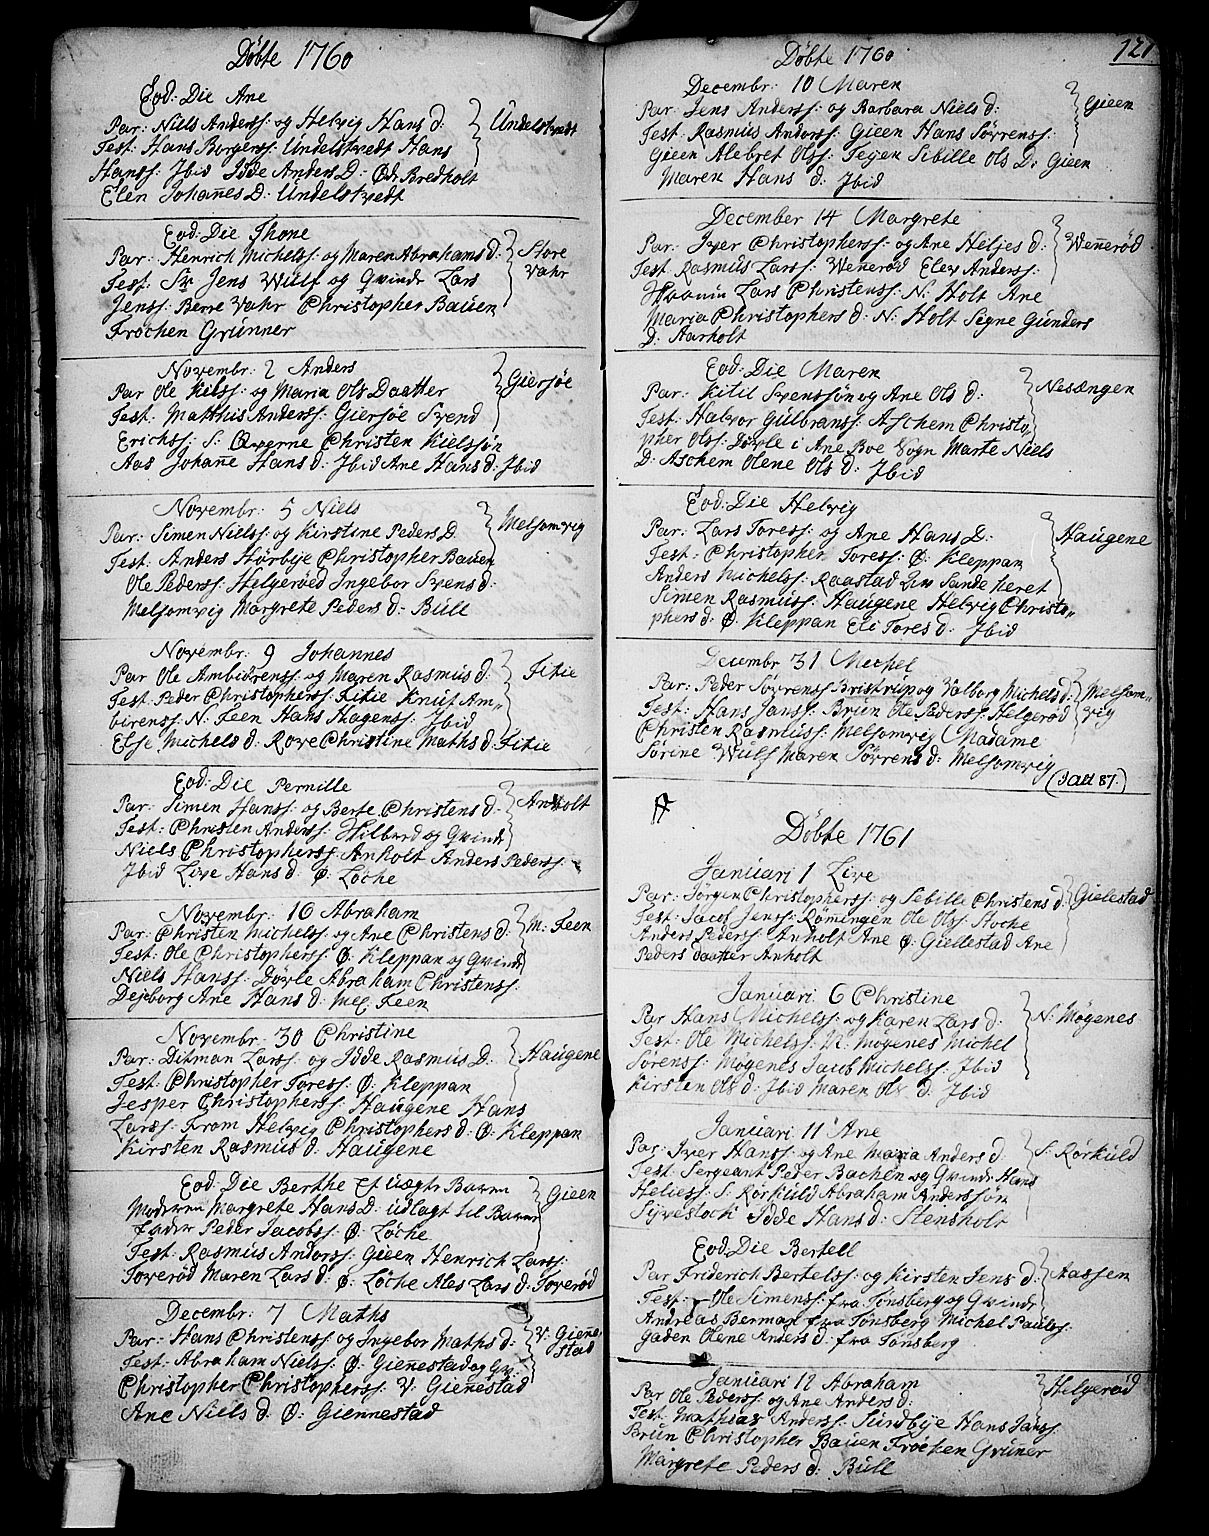 Døbte 1760
Eod: Die Ane
Par: Niels Anderss: og Helvig Hans D: Undelstvedt
Test: Hans Borgerss: Undelstvedt Hans
Hanss: Jbid Idde Anders D: Ød: Bredholt
Elen Johannes D: Undelstvedt
Eod: Die Thone
Par: Henrich Michelss: og Maren Abrahams d: Store Vahr
Test: Sr Jens Wulf og Qvinde Lars
Jenss: Berre Vahr Christopher Bauen
Frøchen Grunner
Novembr: 2 Anders
Par Ole Kielss: og Maria Ols Daatter Giersøe
Test: Matthis Anderss: Giersøe Svend
Erichss: S: Qverne Christen Kielssøn
Aas Johanne Hans d: Jbid Ane Hans d: Jbid
Novembr: 5 Niels
Par: Simen Nielss: og Kirstine Peders D: Melsomvig
Test: Anders Hørbye Christopher Bauen
Ole Pederss: Helgerøed Ingebor Svens d:
Melsomvig Margrete Peders d: Bull
Novembr: 9 Johannes
Par Ole Ambiørenss: og Maren Rasmus d: Fitie
Test Peder Christopherss: Fitie Knut Am-
birenss: N: Feen Hans Hagenss: Jbid
Else Michels d: Rove Christine Maths d: Fitie
Eod: Die Pernille
Par: Simen Hanss: og Berte Christens d: Anholt
Test: Christen Anderss: Hilburd og Qvinde
Niels Christopherss: Anholt Anders Pederss:
Jbid Live Hans d: Ø: Løche
Novembr: 16 Abraham
Par: Christen Michelss: og Ane Christens d: M: Feen
Test: Ole Christopherss: Ø: Kleppan og Qvinde
Niels Hanss: Døvle Abraham Christenss:
Dejborg Ane Hans d: Mel: Feen
Novembr: 30 Christine
Par: Ditman Larss: og Idde Rasmus D: Haugene
Test: Christopher Toress: Ø: Kleppan
Jesper Christopherss: Haugene Hans
Larss: From Helvig Christophers d: Ø: Kleppan
Kirsten Rasmus d: Haugene
Eod: Die Berthe Et Uægte Baren Gieen
Moderen Margrete Hans D: udlagt til Barne
fader Peder Jacobss: Ø: Løche
Test: Rasmus Anderss: Gieen Henrich Larss:
Toverød Maren Lars d: Ø: Løche Ales Lars d: Toverød
Decembr: 7 Maths
Par: Hans Christenss: og Ingebor Maths d: V: Giennestad
Test: Abraham Nielss: Ø: Gienestad og Qv:
Christopher Christopherss: V: Gienestad
Ane Niels d: Ø: Giennestad
Døbte 1760 121
Decembr: 10 Maren
Par: Jens Anderss: og Barbara Niels d: Gieen
Test: Rasmus Anderss: Gieen Hans Sørrenss:
Gieen Alebret Olss: Tegen Sibille Ols D: Gieen
Maren Hans d: Jbid
December 14 Margrete
Par: Iver Christopherss: og Ane Heljes d: Wennerød
Test: Rasmus Larss: Wenerød Elev Anderss:
Lars Christenss: N: Holt Ane
Maria Christophers d: N: Holt Signe Gunders
D: Aarholt
Eod: Die Maren
Par: Kitil Svenssøn og Ane Ols d: Nesængen
Test: Halvor Gulbranss: Aschem Christo-
pher Olss: Døvle i Ane Boe Sogn Marte Niels
D: Aschem Olene Ols d: Jbid
Eod: Die Helvig
Par: Lars Toress: og Ane Hans D: Haugene
Test: Christopher Toress: Ø: Kleppan
Anders Michelss: Raastad Sande heret
Simen Rasmuss: Haugene Helvig Christo-
phers d: Ø: Kleppan Eli Tores d: Jbid
Decembr 31 Michel
Par: Peder Sørrenss Bristrup og Valborg Michels d: Melsomvig
Test: Hans Janss: Brun Ole Pederss: Helgerød
Christen Rasmuss: Melsomvig Madame
Sørine Wulf Maren Sørrens d: Melsomvig
(Tall 87.)
Døbte 1761
Januari 1 Live
Par: Jørgen Christopherss: og Sebille Christens d: Gielestad
Test: Jacob Jenss: Rømingen Ole Olss: Stoche
Anders Pederss: Anholt Ane Ø: Giellestad Ane
Peders daatter Anholt
Januari 6 Christine
Par Hans Michelss: og Karen Lars d: N: Møgenes
Test: Ole Michelss: N: Møgenes Michel
Sørenss: Møgenes Jacub Michelss: Jbid
Kirsten Ols d: Jbid Maren Ols d: Jbid
Januari 11 Ane
Par: Iver Hanss: og Ane Maria Anders d: S: Rørkuld
Test: Sergeant Peder Bachen og Qvinde Hans
Heliess: S: Rørkuld Abraham Anderssøn
Syvestock Idde Hans d: Stensholt
Eod: Die Bertell
Par Friderich Bertelss: og Kirsten Jens d: Aassen
Test: Ole Simenss: fra Tønsberg og Qvinde
Andreas Berman fra Tønsberg Michel Paulss:
gaden Olene Anders d: fra Tønsberg
Januari 12 Abraham
Par Ole Pederss: og Ane Anders d: Helgerød
Test: Mathias Anderss: Sundbye Hans Janss:
Brun Christopher Bauen Frøcken Gruner
Margrete Peders d: Bull